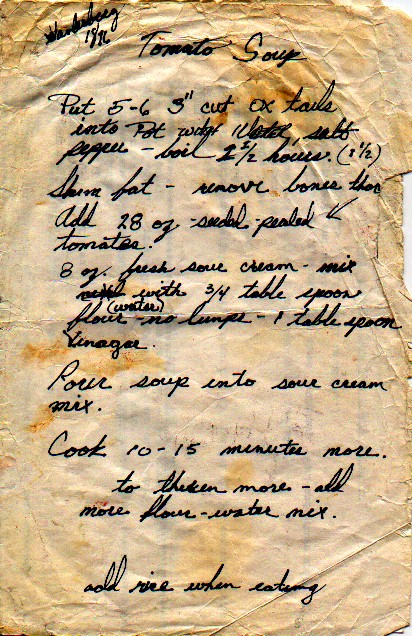 Tomato Soup
Put 5-6 3" cut Ox tails
into Pot with Water, salt
pepper - boil 2 1/2 hours. (2 1/2)
Skim fat - remove bones then
Add 28 oz - seeded - pealed
tomatoes.
8 oz. fresh sour cream - mix
with 3/4 table spoon
(water)
flour - no lumps - 1 table spoon
Vinagar.
Pour soup into sour cream
mix.
Cook 10-15 minutes more.
to thicken more - add
more flour-water mix.
add rice when eating